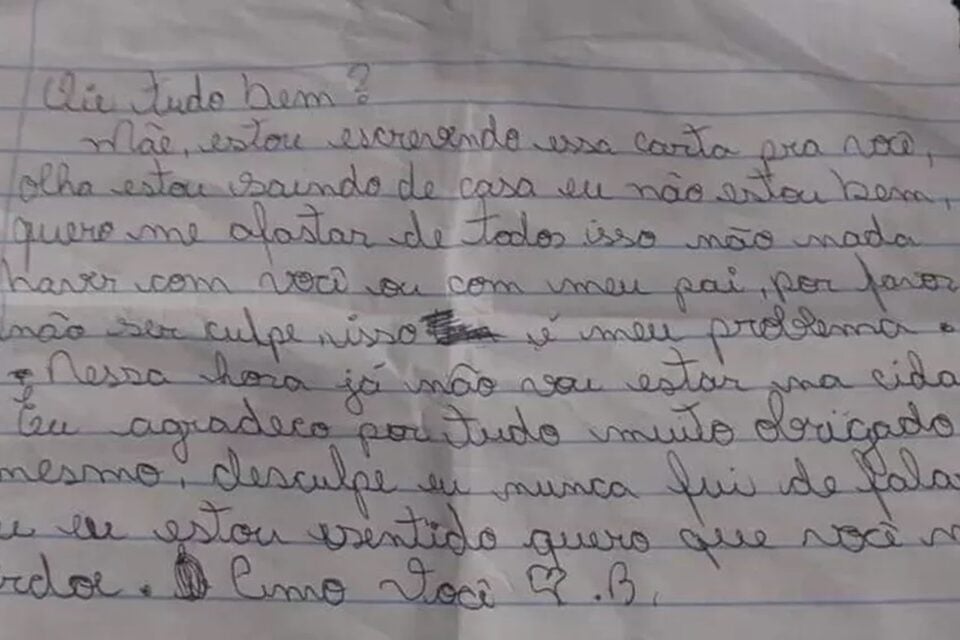 Oie tudo bem?
Mãe, estou escrevendo essa carta pra você,
olha estou saindo de casa eu não estou bem,
quero me afastar de todos isso não nada
haver com você ou com meu pai, por favor
não ser culpe, isso é meu problema.
Nessa hora já não vou estar na cida
Eu agradeço por tudo muito obrigado
mesmo, desculpe eu nunca fui de fala
u eu estou sentido quero que você m
rdoe. Amo você B.